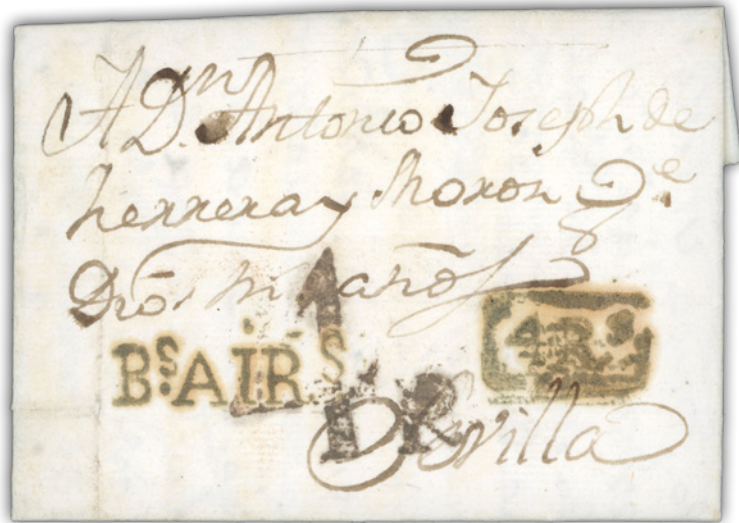 A Dn. Antonio Joseph de
herrera y Moron Ge
Dios m añs
BS. AIRS.
4RS
1R
Sevilla